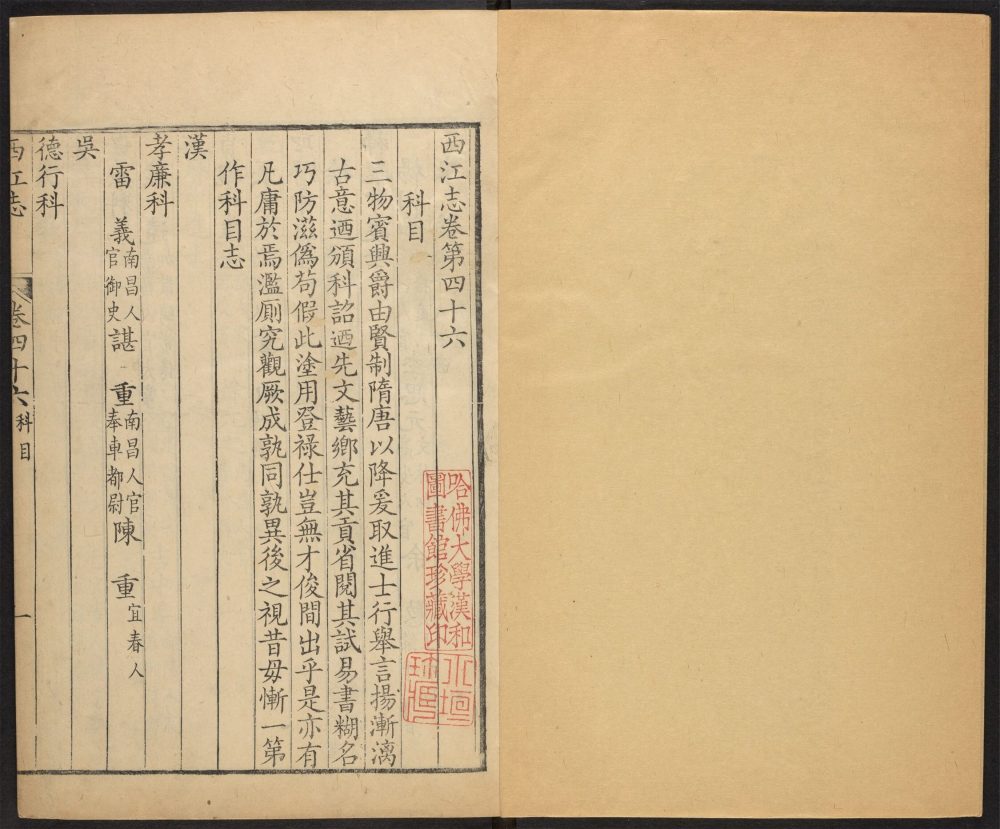 西江志卷第四十六
科目
三物賓興爵由賢制隋唐以降爰取進士行舉言揚漸漓
古意迺頒科詔迺先文藝鄉充其貢省閱其試易書糊名
巧防滋偽苟假此塗用登祿仕豈無才俊間出乎是亦有
凡庸於焉濫廁究觀厥成孰同孰異後之視昔毋慚一第
作科目志
漢
孝廉科
雷 義 南昌人官御史 諶 重 南昌人官奉車都尉 陳 重 宜春人
吳
德行科
西江志 卷四十六 科目 一
哈佛大學漢和
圖書館珍藏印